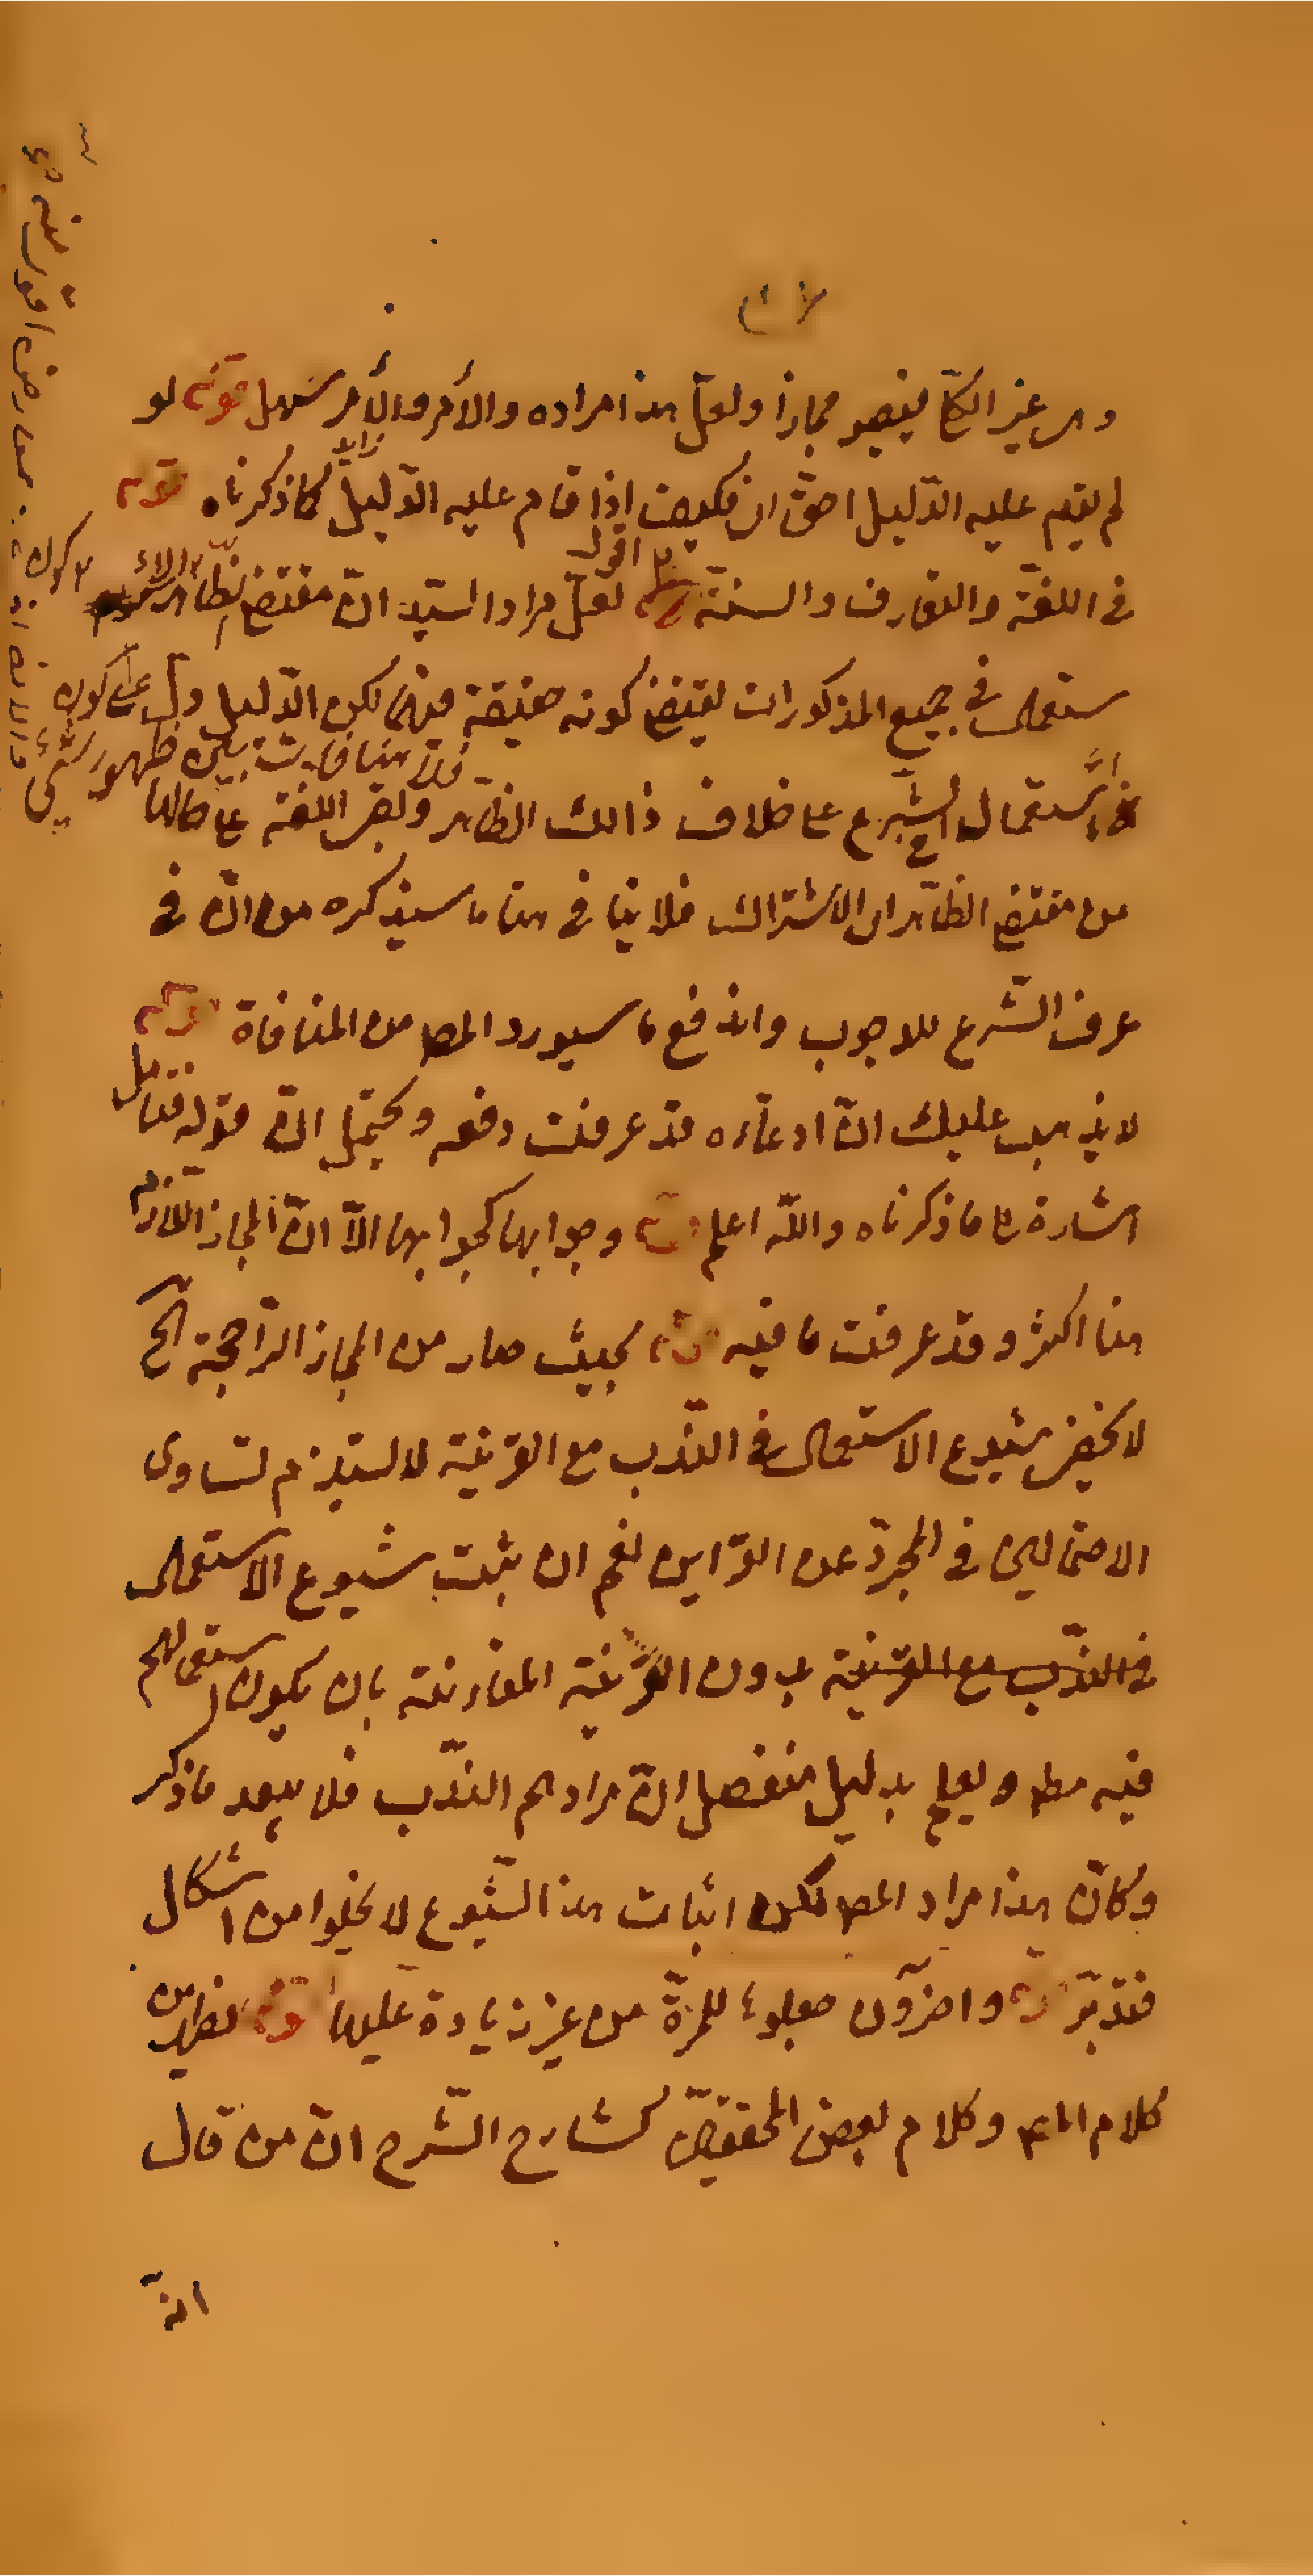 غير الكلّ فيصير مجازا ولعلّ هذا مراده والأمر والأمر سهل قوله لو
لم يقم عليه الدّليل احقّ ان فكيف اذا قام عليه الدّليل كما ذكرناه قوله
زايد
في اللغة والتعارف والسنّة اقول لعلّ مراد السيّد انّ مقتضى ظاهر
ستعمال في جميع المذكورات يقتضى كونه حقيقة فيها لكن الدّليل دلّ على كون
فلا منافات بين ظهور شيء
استعمال الشّرع على خلاف ذالك الظّاهر وبقى اللغة على حالها
من مقتضى الظّاهر اى الاشتراك فلا ينافى هذا ما سيذكره من انّ في
عرف الشّرع للوجوب واندفع ما سيورد المص من المنافاة قوله
لا يذهب عليك انّ ادعاءه قد عرفت دفعه ويحتمل انّ قوله فتأمل
اشارة على ما ذكرناه واللّه اعلم قوله وجوابها كجوابها الّا انّ المجاز اللّازم
هنا اكثر وقد عرفت ما فيه قوله بحيث صار من المجاز الرّاجحة الخ
لا يخفى شيوع الاستعمال في النّدب مع القرينة لا يستلزم تساوى
الاحتمالين في المجرّد عن القراين نعم ان يثبت شيوع الاستعمال
في النّدب مع القرينة بدون القرينة المقارنة بان يكون استعمالهم
فيه مط ويعلم بدليل منفصل انّ مرادهم النّدب فلا يبعد ما ذكر
وكانّ هذا مراد المص لكن اثبات هذا الشّيوع لا يخلوا من اشكال
فتدبّر قوله واخرون جعلوها للمرّة من غير زيادة عليها قوله يظهر من
كلام وكلام بعض المحققين كشارح الشّرح انّ من قال
انّه